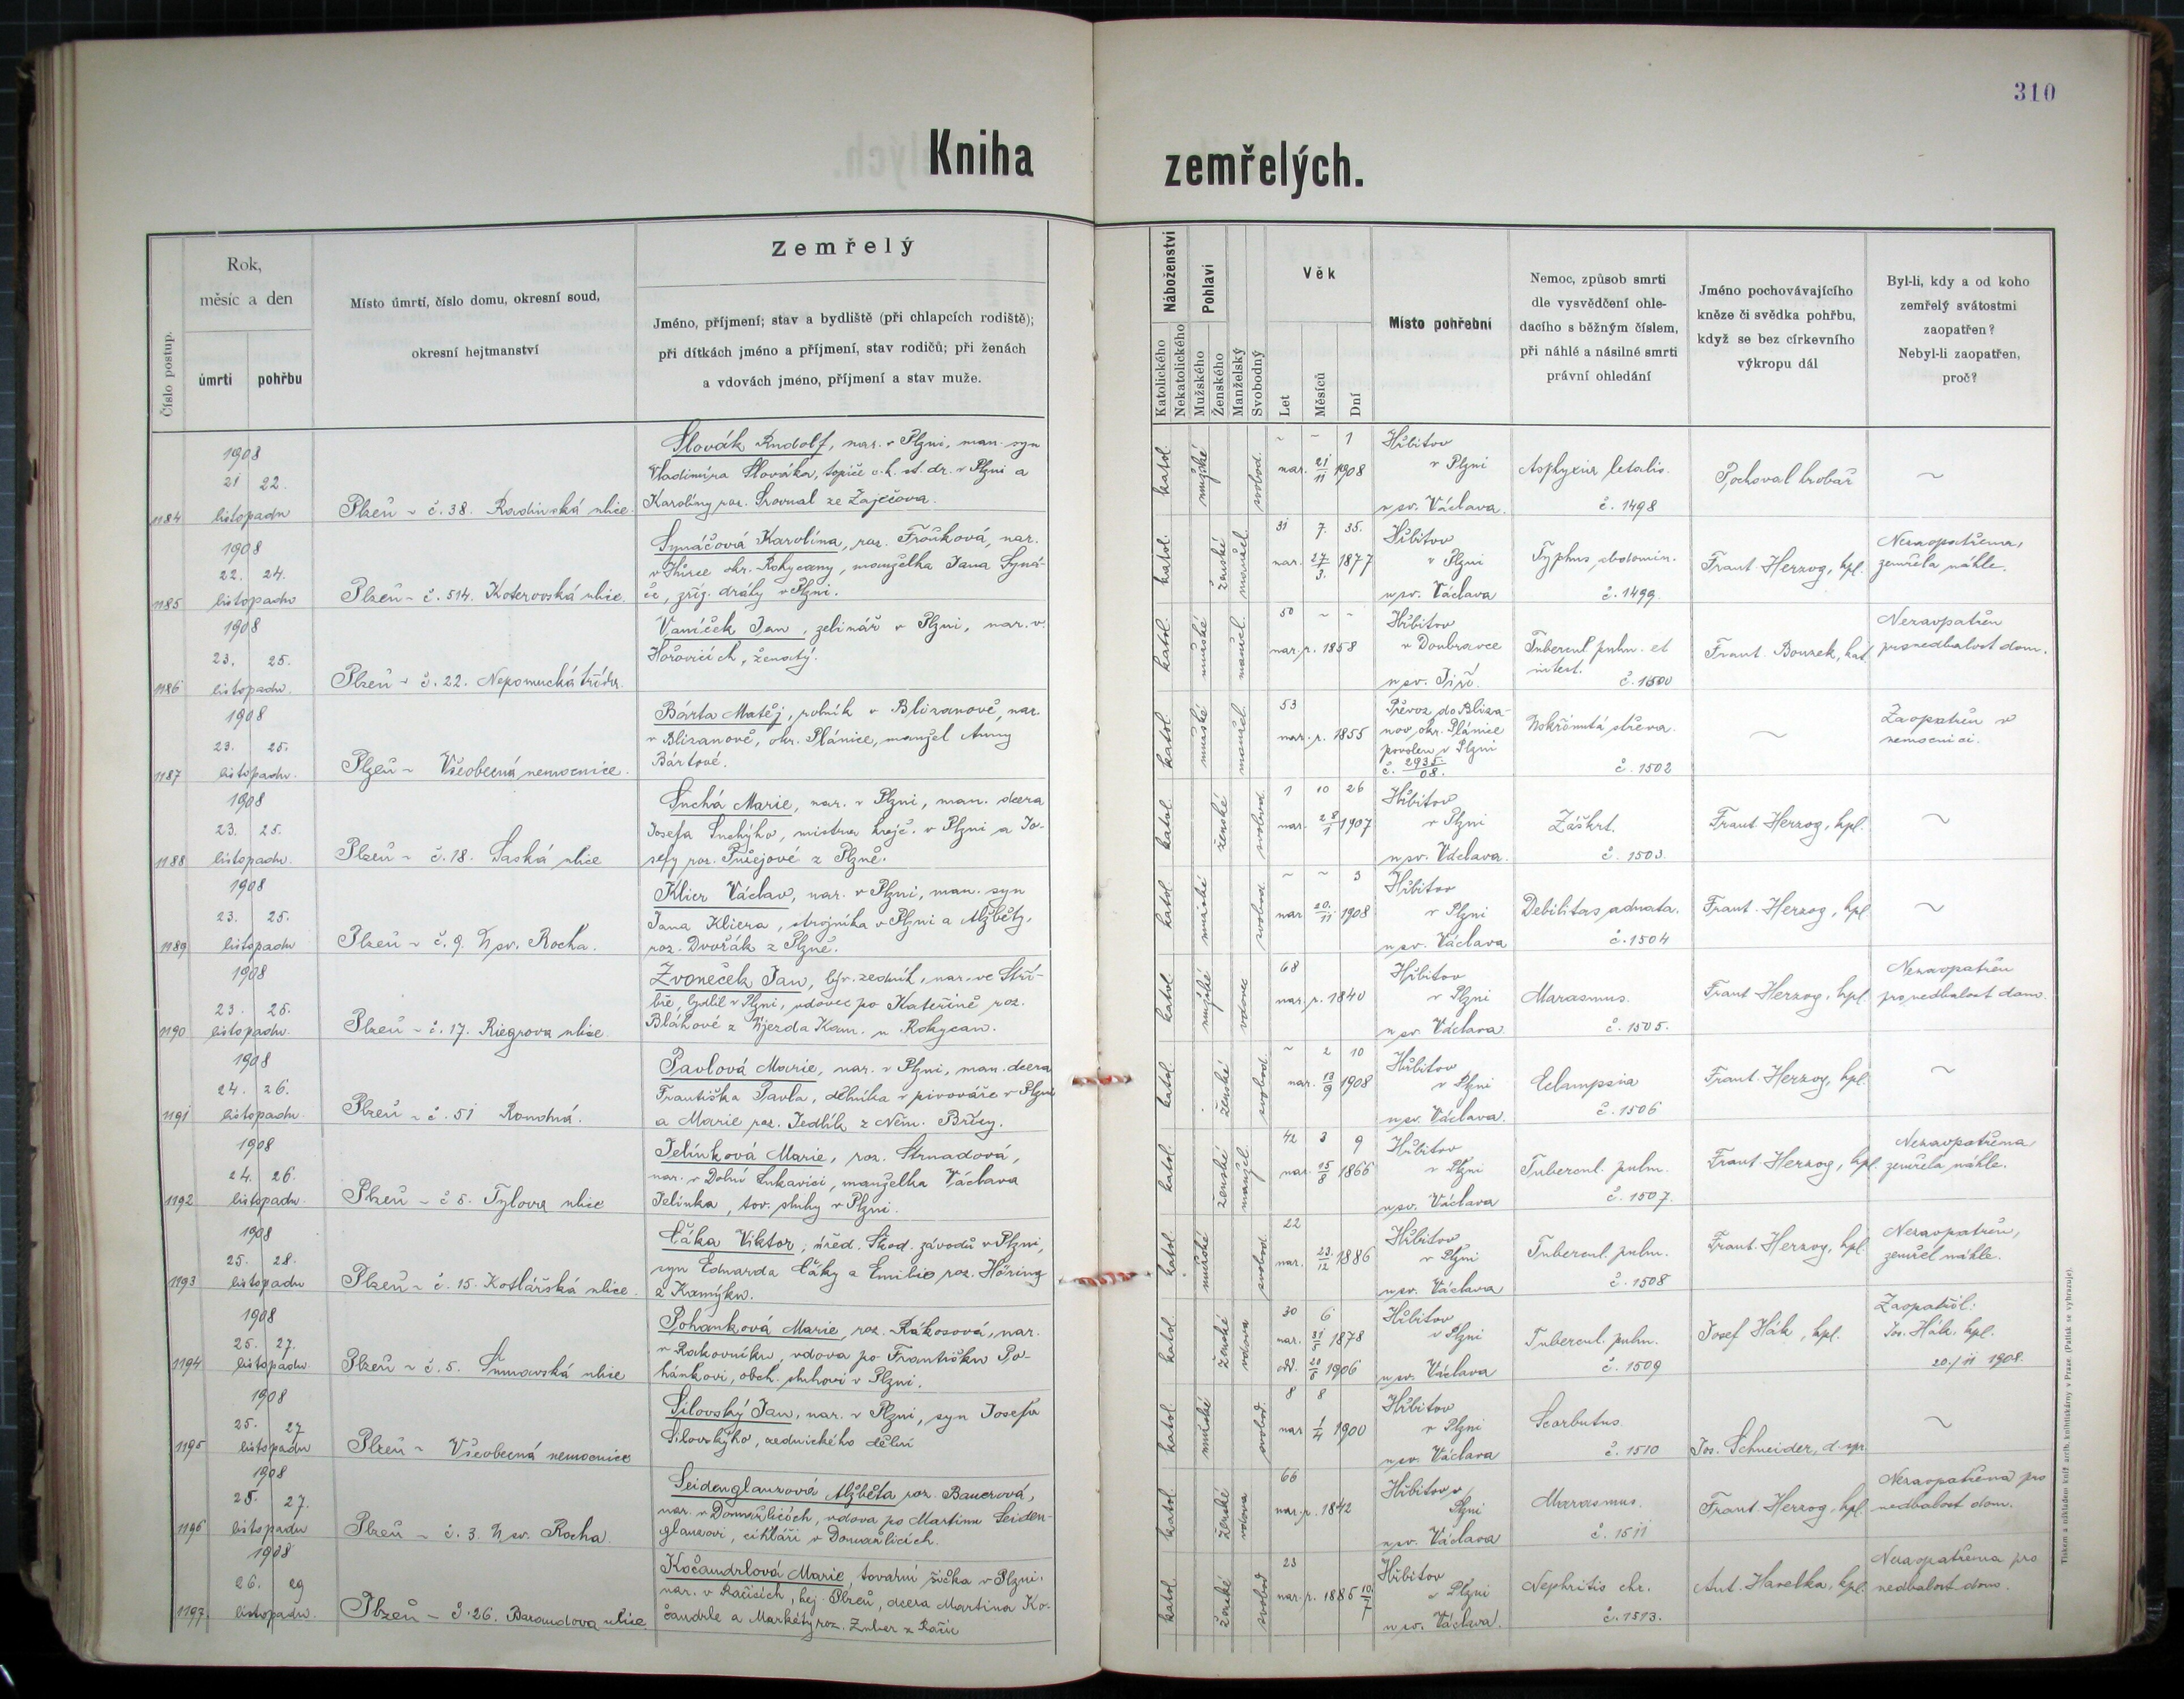 310
Kniha zemřelých.
Číslo postup.
Rok,
měsíc a den
úmrtí
pohřbu
Místo úmrtí, číslo domu, okresní soud,
okresní hejtmanství
Zemřelý
Jméno, příjmení; stav a bydliště (při chlapcích rodiště);
při dítkách jméno a příjmení, stav rodičů; při ženách
a vdovách jméno, příjmení a stav muže.
Náboženství
Katolického
Nekatolického
Pohlaví
Mužského
Ženského
Manželský
Svobodný
Věk
Let
Měsíců
Dní
Místo pohřební
Nemoc, způsob smrti
dle vysvědčení ohle-
dacího s běžným číslem,
při náhlé a násilné smrti
právní ohledání
Jméno pochovávajícího
kněze či svědka pohřbu,
když se bez církevního
výkropu dál
Byl-li, kdy a od koho
zemřelý svátostmi
zaopatřen?
Nebyl-li zaopatřen,
proč?
1184
1908
21 22.
listopadu
Plzeň - č. 38. Radinská ulice.
Slovák Rudolf, nar. v Plzni, man. syn
Vladimíra Slováka, topiče c.k. st. dr. v Plzni a
Karolíny roz. Srovnal ze Zaječova.
katol. mužské svobod.
~ ~ 1
nar. 21/11 1908
Hřbitov
v Plzni
u sv. Václava.
Asphyxia letalis.
č. 1498
Pochoval hrobař
~
1185
1908
22. 24.
listopadu
Plzeň - č. 514. Koterovská ulice.
Synáčová Karolína, roz. Froňková, nar.
okr. Rokycany, manželka Jana Syná-
če, zříz. dráhy v Plzni.
katol. ženské manžel.
31 7. 35.
nar. 27/3. 1877
Hřbitov
v Plzni
u sv. Václava
Typhus abdomin.
č. 1499.
Frant. Herzog, kpl.
Nezaopatřena,
zemřela náhle.
1186
1908
23. 25.
listopadu.
Plzeň - č. 22. Nepomucká třída.
Vaníček Jan, zelinář v Plzni, nar. v
Hořovicích, ženatý.
katol. mužské manžel.
50 ~ ~
nar. r. 1858
Hřbitov
v Doubravce
u sv. Jiří.
Tubercul. pulm. et
intest.
č. 1500
Frant. Bouzek, kat.
Nezaopatřen
pro nedbalost dom.
1187
1908
23. 25.
listopadu.
Plzeň - Všeobecná nemocnice.
Bárta Matěj, rolník v Blizanově, nar.
v Blizanově, okr. Plánice, manžel Anny
Bártové.
katol. mužské manžel.
53
nar. r. 1855
Převoz do Bliza-
nov okr. Plánice
povolen v Plzni
č. 2935./08.
Uskřinutá střeva.
č. 1502
~
Zaopatřen v
nemocnici.
1188
1908
23. 25.
listopadu.
Plzeň - č. 18. Saská ulice
Suchá Marie, nar. v Plzni, man. dcera
Josefa Suchýho, mistra krejč. v Plzni a Jo-
sefy roz. Tušejové z Plzně.
katol. ženské svobod.
1 10 26
nar. 28/1 1907
Hřbitov
v Plzni
u sv. Václava.
Záškrt.
č. 1503.
Frant. Herzog, kpl.
~
1189
1908
23. 25.
listopadu
Plzeň - č. 9. U sv. Rocha.
Klier Václav, nar. v Plzni, man. syn
Jana Kliera, strojníka v Plzni a Alžběty,
roz. Dvořák z Plzně.
katol. mužské svobod.
~ ~ 3
nar. 20./11 1908
Hřbitov
v Plzni
u sv. Václava
Debilitas adnata.
č. 1504
Frant. Herzog, kpl.
~
1190
1908
23. 25.
listopadu.
Plzeň - č. 17. Riegrova ulice.
Zvoneček Jan, býv. zedník, nar. ve Stří-
bře, bydlil v Plzni, vdovec po Kateřině roz.
Bláhové z Újezda Kam. u Rokycan.
katol. mužské vdovec
68
nar. r. 1840
Hřbitov
v Plzni
u sv. Václava
Marasmus.
č. 1505.
Frant. Herzog, kpl.
Nezaopatřen
pro nedbalost dom.
1191
1908
24. 26.
listopadu.
Plzeň - č. 51 Roudná.
Pavlová Marie, nar. v Plzni, man. dcera
Františka Pavla, dělníka v pivováře v Plzni
a Marie roz. Jedlík z Něm. Břízy.
katol. ženské svobod.
~ 2 10
nar. 13/9 1908
Hřbitov
v Plzni
u sv. Václava.
Eclampsia
č. 1506
Frant. Herzog, kpl.
~
1192
1908
24. 26.
listopadu.
Plzeň - č 5. Tylova ulice
Jelínková Marie, roz. Strnadová,
nar. v Dolní Lukavici, manželka Václava
Jelínka, tov. sluhy v Plzni.
katol. ženské manžel.
42 3 9
nar. 15/8 1866
Hřbitov
v Plzni
u sv. Václava
Tubercul. pulm.
č. 1507.
Frant. Herzog, kpl.
Nezaopatřena
zemřela náhle.
1193
1908
25. 28.
listopadu
Plzeň - č. 15. Kotlářská ulice.
Čáka Viktor, úřed. Škod. závodů v Plzni,
syn Eduarda Čáky a Emilie roz. Höring
z Kamýku.
katol. mužské svobod.
22
nar. 23./12 1886
Hřbitov
v Plzni
u sv. Václava
Tubercul. pulm.
č. 1508
Frant. Herzog, kpl.
Nezaopatřen,
zemřel náhle.
1194
1908
25. 27.
listopadu.
Plzeň - č. 5. Šumavská ulice
Pohanková Marie, roz. Rákosová, nar.
v Rakovníku, vdova po Františku Po-
hánkovi, obch. sluhovi v Plzni.
katol. ženské vdova
30 6
nar. 31/5 1878
odd. 20/5 1906
Hřbitov
v Plzni
u sv. Václava
Tubercul. pulm.
č. 1509
Josef Hák, kpl.
Zaopatřil:
Jos. Hák, kpl.
20./11 1908.
1195
1908
25. 27
listopadu
Plzeň - Všeobecná nemocnice
Silovský Jan, nar. v Plzni, syn Josefa
Silovskýho, zednického dělní
katol. mužské svobod.
8 8
nar. 1/4 1900
Hřbitov
v Plzni
u sv. Václava
Scorbutus.
č. 1510
Jos. Schneider, d. spr.
~
1196
1908
25. 27.
listopadu
Plzeň - č. 3. U sv. Rocha.
Seidenglanzová Alžběta roz. Bauerová,
nar. v Domažlicích, vdova po Martinu Seiden-
glanzovi, cihláři v Domažlicích.
katol. ženské vdova
66
nar. r. 1842
Hřbitov v
Plzni
u sv. Václava
Marasmus.
č. 1511
Frant. Herzog, kpl.
Nezaopatřena pro
nedbalost dom.
1197
1908
26. 29
listopadu.
Plzeň - č. 26. Barandova ulice
Kočandrlová Marie, tovární šička v Plzni.
nar. v Račicích, hej. Plzeň, dcera Martina Ko-
čandrle a Markéty roz. Zuber z Račic
katol. ženské svobod.
23
nar. r. 1885 10/7
Hřbitov
v Plzni
u sv. Václava.
Nephritis chr.
č. 1513.
Ant. Havelka, kpl.
Nezaopatřena pro
nedbalost dom.
Tiskem a nákladem kníž. arcib. knihtiskárny v Praze. (Patisk se vyhrazuje).